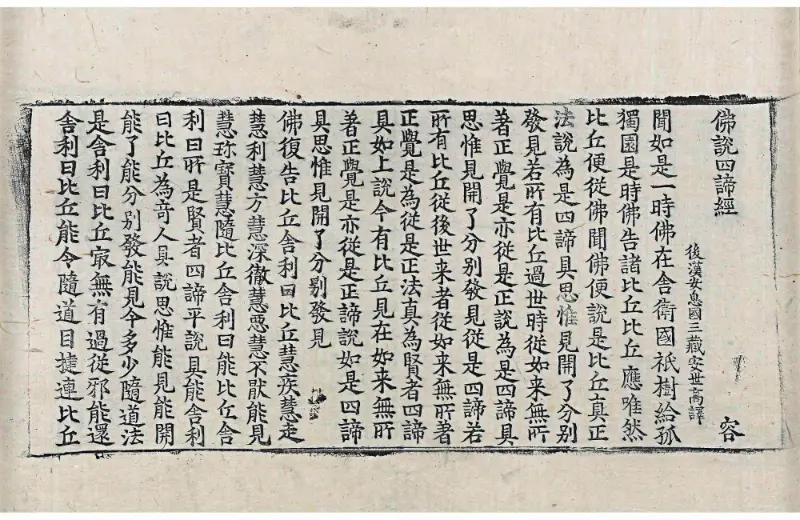 佛說四諦經 容
後漢安息國三藏安世高譯
聞如是一時佛在舍衛國祇樹給孤
獨園是時佛告諸比丘比丘應唯然
比丘便從佛聞佛便說是比丘真正
法說為是四諦具思惟見開了分別
發見若所有比丘過世時從如來無所
著正覺是亦從是正說為是四諦具
思惟見開了分別發見從是四諦若
所有比丘從後世来者從如來無所著
正覺是為從是正法真為賢者四諦
具如上說今有比丘見在如来無所
著正覺是亦從是正諦說如是四諦
具思惟見開了分別發見
佛復告比丘舍利曰比丘慧疾慧走
慧利慧方慧深徹慧悪慧不猒能見
慧珎寳慧隨比丘舍利曰能比丘舍
利曰所是賢者四諦平說具能舍利
曰比丘為竒人具說思惟能見能開
能了能分別發能見今多少隨道法
是舍利曰比丘㝡無有過從邪能還
舍利曰比丘能令隨道目揵連比丘